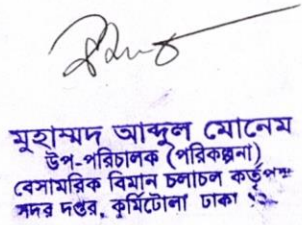 মুহাম্মদ আব্দুল মোনেম
উপ-পরিচালক (পরিকল্পনা)
বেসামরিক বিমান চলাচল কর্তৃপক্ষ
সদর দপ্তর, কুর্মিটোলা ঢাকা